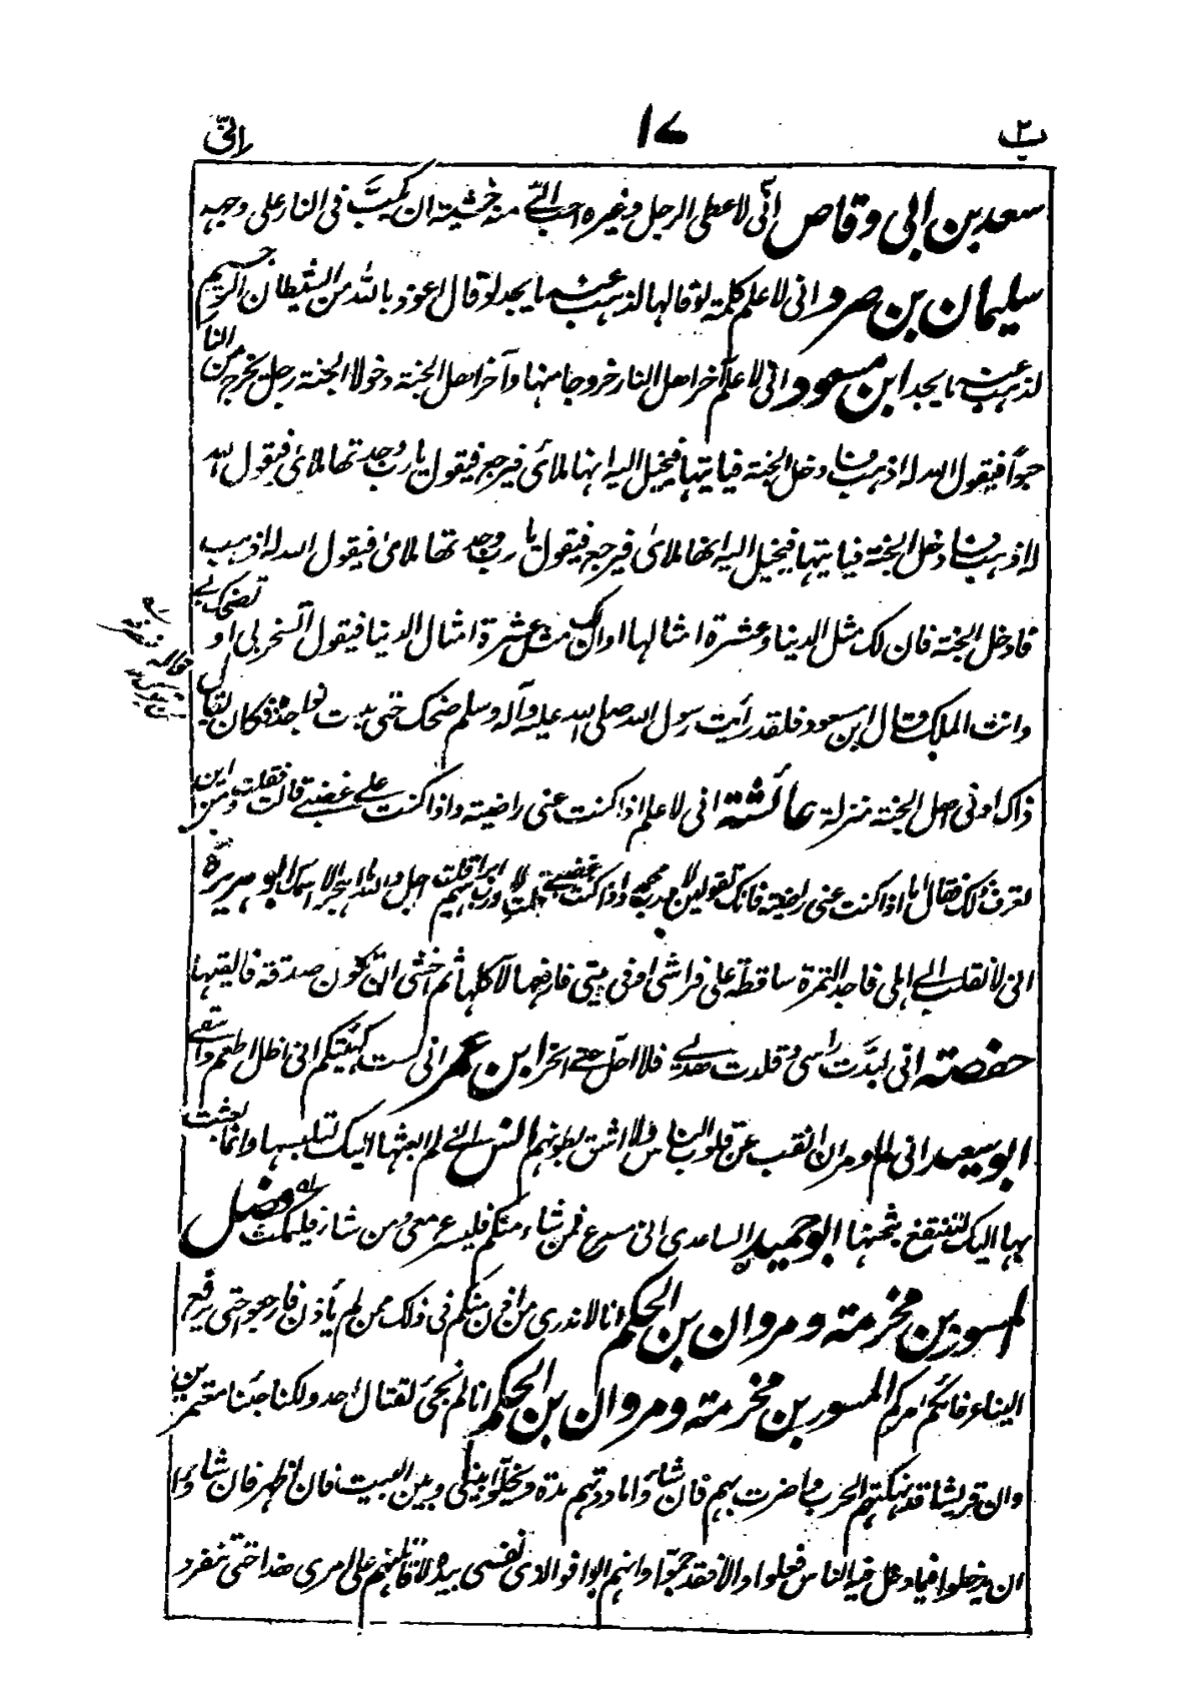 ب۲ ١٧ انّی
سعد بن ابی وقاص انّی لاعطی الرجل وغیره احب الیّ منه خشیته ان یکبّ فی النار علی وجهه
سلیمان بن صرد انی لاعلم کلمة لو قالها لذهب عنه ما یجد لو قال اعوذ بالله من الشیطان الرجیم
لذهب عنه ما یجد ابن مسعود انی لاعلم آخر اهل النار خروجا منها وآخر اهل الجنة دخولا الجنة رجل یخرج من النار
حبوًا فیقول الله له اذهب فادخل الجنة فیاتیها فیخیل الیه انها ملائی فیرجع فیقول یا رب وجدتها ملائی فیقول الله
له اذهب فادخل الجنة فیاتیها فیخیل الیه انها ملائی فیرجع فیقول یا رب وجدتها ملائی فیقول الله له اذهب
فادخل الجنة فان لک مثل الدنیا وعشرة امثالها او ان لک مثل عشرة امثال الدنیا فیقول أتسخر بی او تضحک بی
وانت الملک وقال ابن مسعود فلقد رأیت رسول الله صلی الله علیه وآله وسلم ضحک حتی بدت نواجذه فکان یقال
ذاک ادنی اهل الجنة منزلة عائشة انی لاعلم اذا کنت عنی راضیة واذا کنت علی غضبی قالت فقلت ومن این
تعرف ذلک فقال اما اذا کنت عنی راضیة فانک تقولین لا ورب محمد واذا کنت غضبی قلت لا ورب ابراهیم قلت اجل والله ما اهجر الا اسمک ابو هریرة
انی لانقلب الی اهلی فاجد التمرة ساقطة علی فراشی او فی بیتی فارفعها لآکلها ثم اخشی ان تکون صدقة فالقیها
حفصة انی لبّدت راسی وقلدت هدیی فلا احل حتی انحر ابن عمر انی لست کهیئتکم انی اظل اطعم واسقی
ابو سعید انی لم اومر ان انقب عن قلوب الناس ولا اشق بطونهم انس انی لم ابعثها الیک لتلبسها وانما بعثت
بها الیک لتنتفع بثمنها ابو حمید الساعدی انی مسرع فمن شاء منکم فلیسرع معی ومن شاء فلیمکث فصل
المسور بن مخرمة ومروان بن الحکم انا لا ندری من اذن منکم فی ذلک ممن لم یأذن فارجعوا حتی یرفع
الینا عرفاؤکم امرکم المسور بن مخرمة ومروان بن الحکم انا لم نجئ لقتال احد ولکنا جئنا معتمرین
وان قریشا قد نهکتهم الحرب واضرت بهم فان شاؤا ماددتهم مدة ویخلّوا بینی وبین البیت فان اظهر فان شاؤا
ان یدخلوا فیما دخل فیه الناس فعلوا والا فقد جمّوا وان هم ابوا فوالذی نفسی بیده لاقاتلنهم علی امری هذا حتی تنفرد